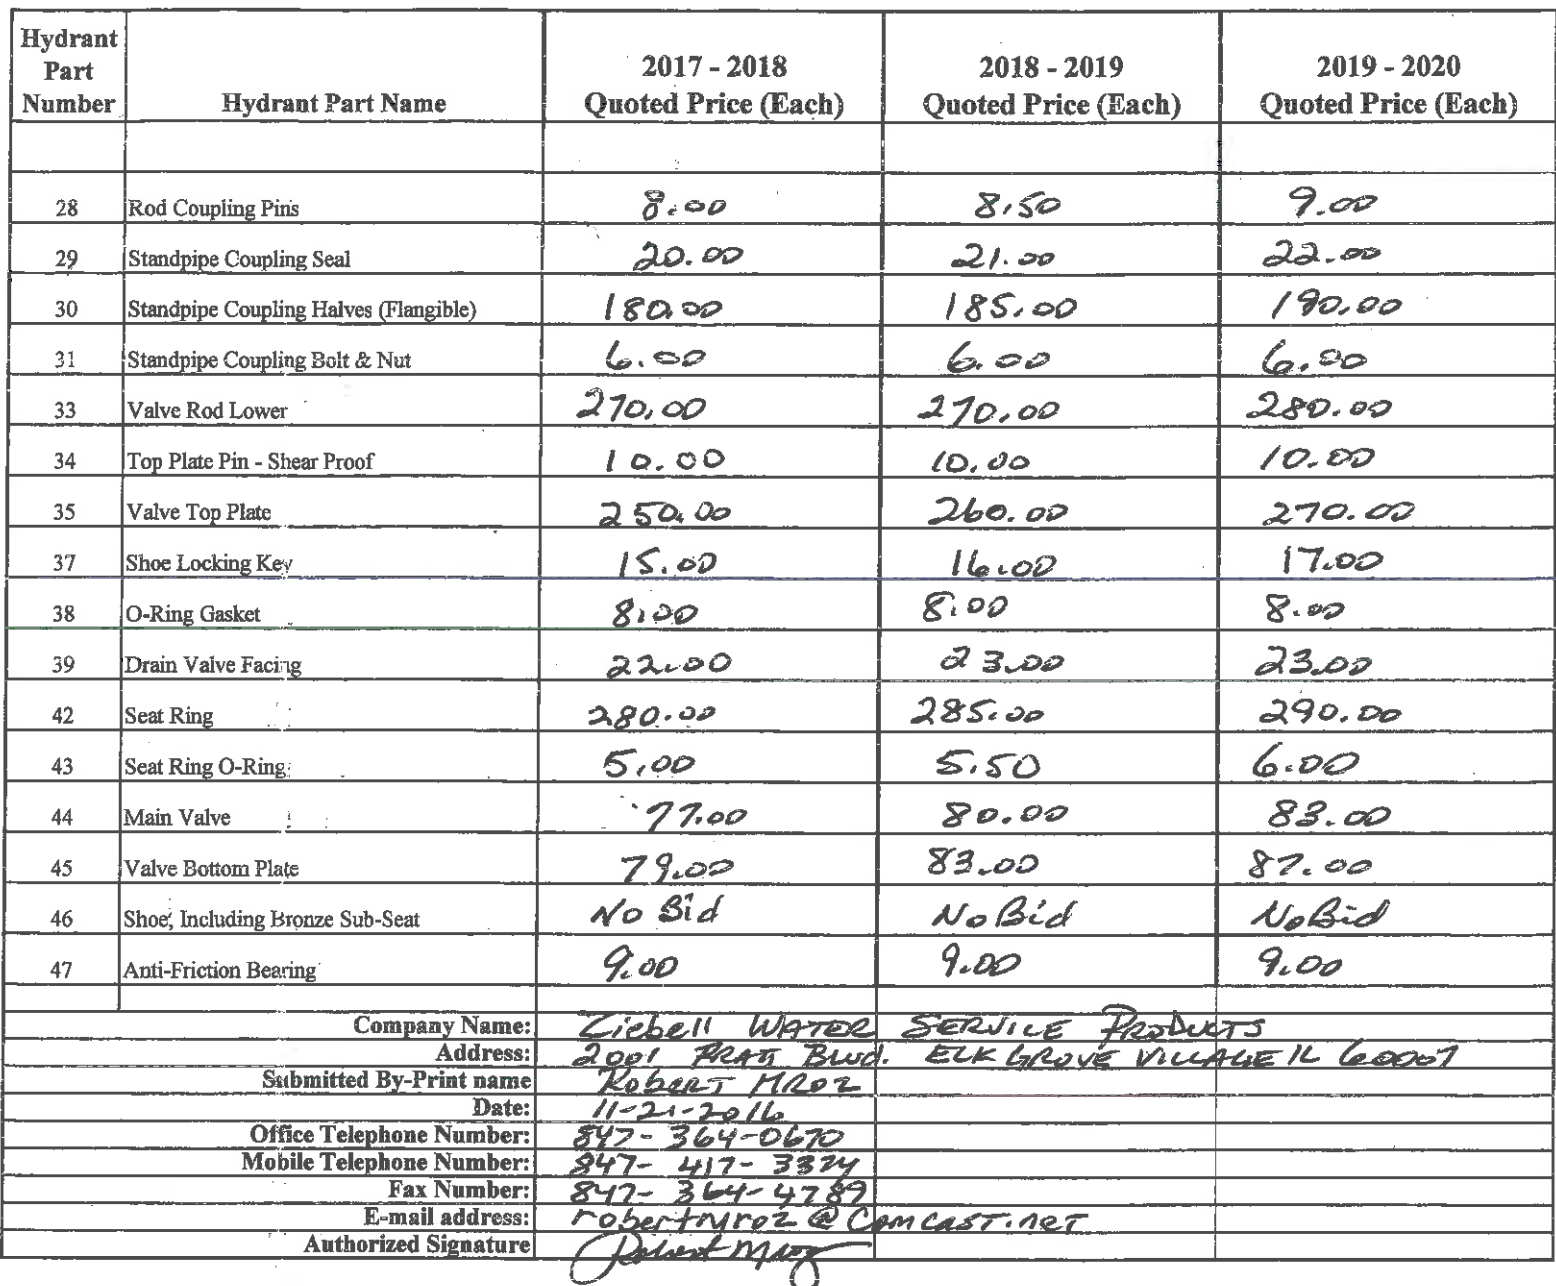 Hydrant Part Number Hydrant Part Name 2017 - 2018 Quoted Price (Each) 2018 - 2019 Quoted Price (Each) 2019 - 2020 Quoted Price (Each)
28 Rod Coupling Pins 8.00 8.50 9.00
29 Standpipe Coupling Seal 20.00 21.00 22.00
30 Standpipe Coupling Halves (Flangible) 180.00 185.00 190.00
31 Standpipe Coupling Bolt & Nut 6.00 6.00 6.00
33 Valve Rod Lower 270.00 270.00 280.00
34 Top Plate Pin - Shear Proof 10.00 10.00 10.00
35 Valve Top Plate 250.00 260.00 270.00
37 Shoe Locking Key 15.00 16.00 17.00
38 O-Ring Gasket 8.00 8.00 8.00
39 Drain Valve Facing 22.00 23.00 23.00
42 Seat Ring 280.00 285.00 290.00
43 Seat Ring O-Ring 5.00 5.50 6.00
44 Main Valve 77.00 80.00 83.00
45 Valve Bottom Plate 79.00 83.00 87.00
46 Shoe, Including Bronze Sub-Seat No Bid No Bid No Bid
47 Anti-Friction Bearing 9.00 9.00 9.00
Company Name: Ziebell WATER SERVICE PRODUCTS
Address: 2001 PRATT BLVD. ELK GROVE VILLAGE IL 60007
Submitted By-Print name Robert MROZ
Date: 11-21-2016
Office Telephone Number: 847-364-0670
Mobile Telephone Number: 847-417-3374
Fax Number: 847-364-4789
E-mail address: robertmroz@comcast.net
Authorized Signature Robert Mroz